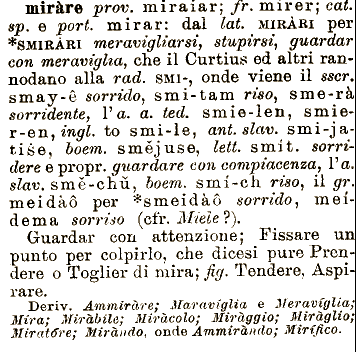 miràre prov. miraiar; fr. mirer; cat.
sp. e port. mirar: dal lat. MIRÀRI per
*SMIRÀRI meravigliarsi, stupirsi, guardar
con meraviglia, che il Curtius ed altri ran-
nodano alla rad. SMI-, onde viene il sscr.
smay-ê sorrido, smi-tam riso, sme-rà
sorridente, l'a. a. ted. smie-len, smie-
r-en, ingl. to smi-le, ant. slav. smi-ja-
tiše, boem. smějuse, lett. smit. sorri-
dere e propr. guardare con compiacenza, l'a.
slav. smě-chŭ, boem. smí-ch riso, il gr.
meidàô per *smeidàô sorrido, meí-
dema sorriso (cfr. Miele?).
Guardar con attenzione; Fissare un
punto per colpirlo, che dicesi pure Pren-
dere o Toglier di mira; fig. Tendere, Aspi-
rare.
Deriv. Ammiràre; Maravíglia e Meravíglia;
Míra; Miràbile; Miràcolo; Miràggio; Miràglio;
Miratóre; Miràndo, onde Ammiràndo; Mirífico.